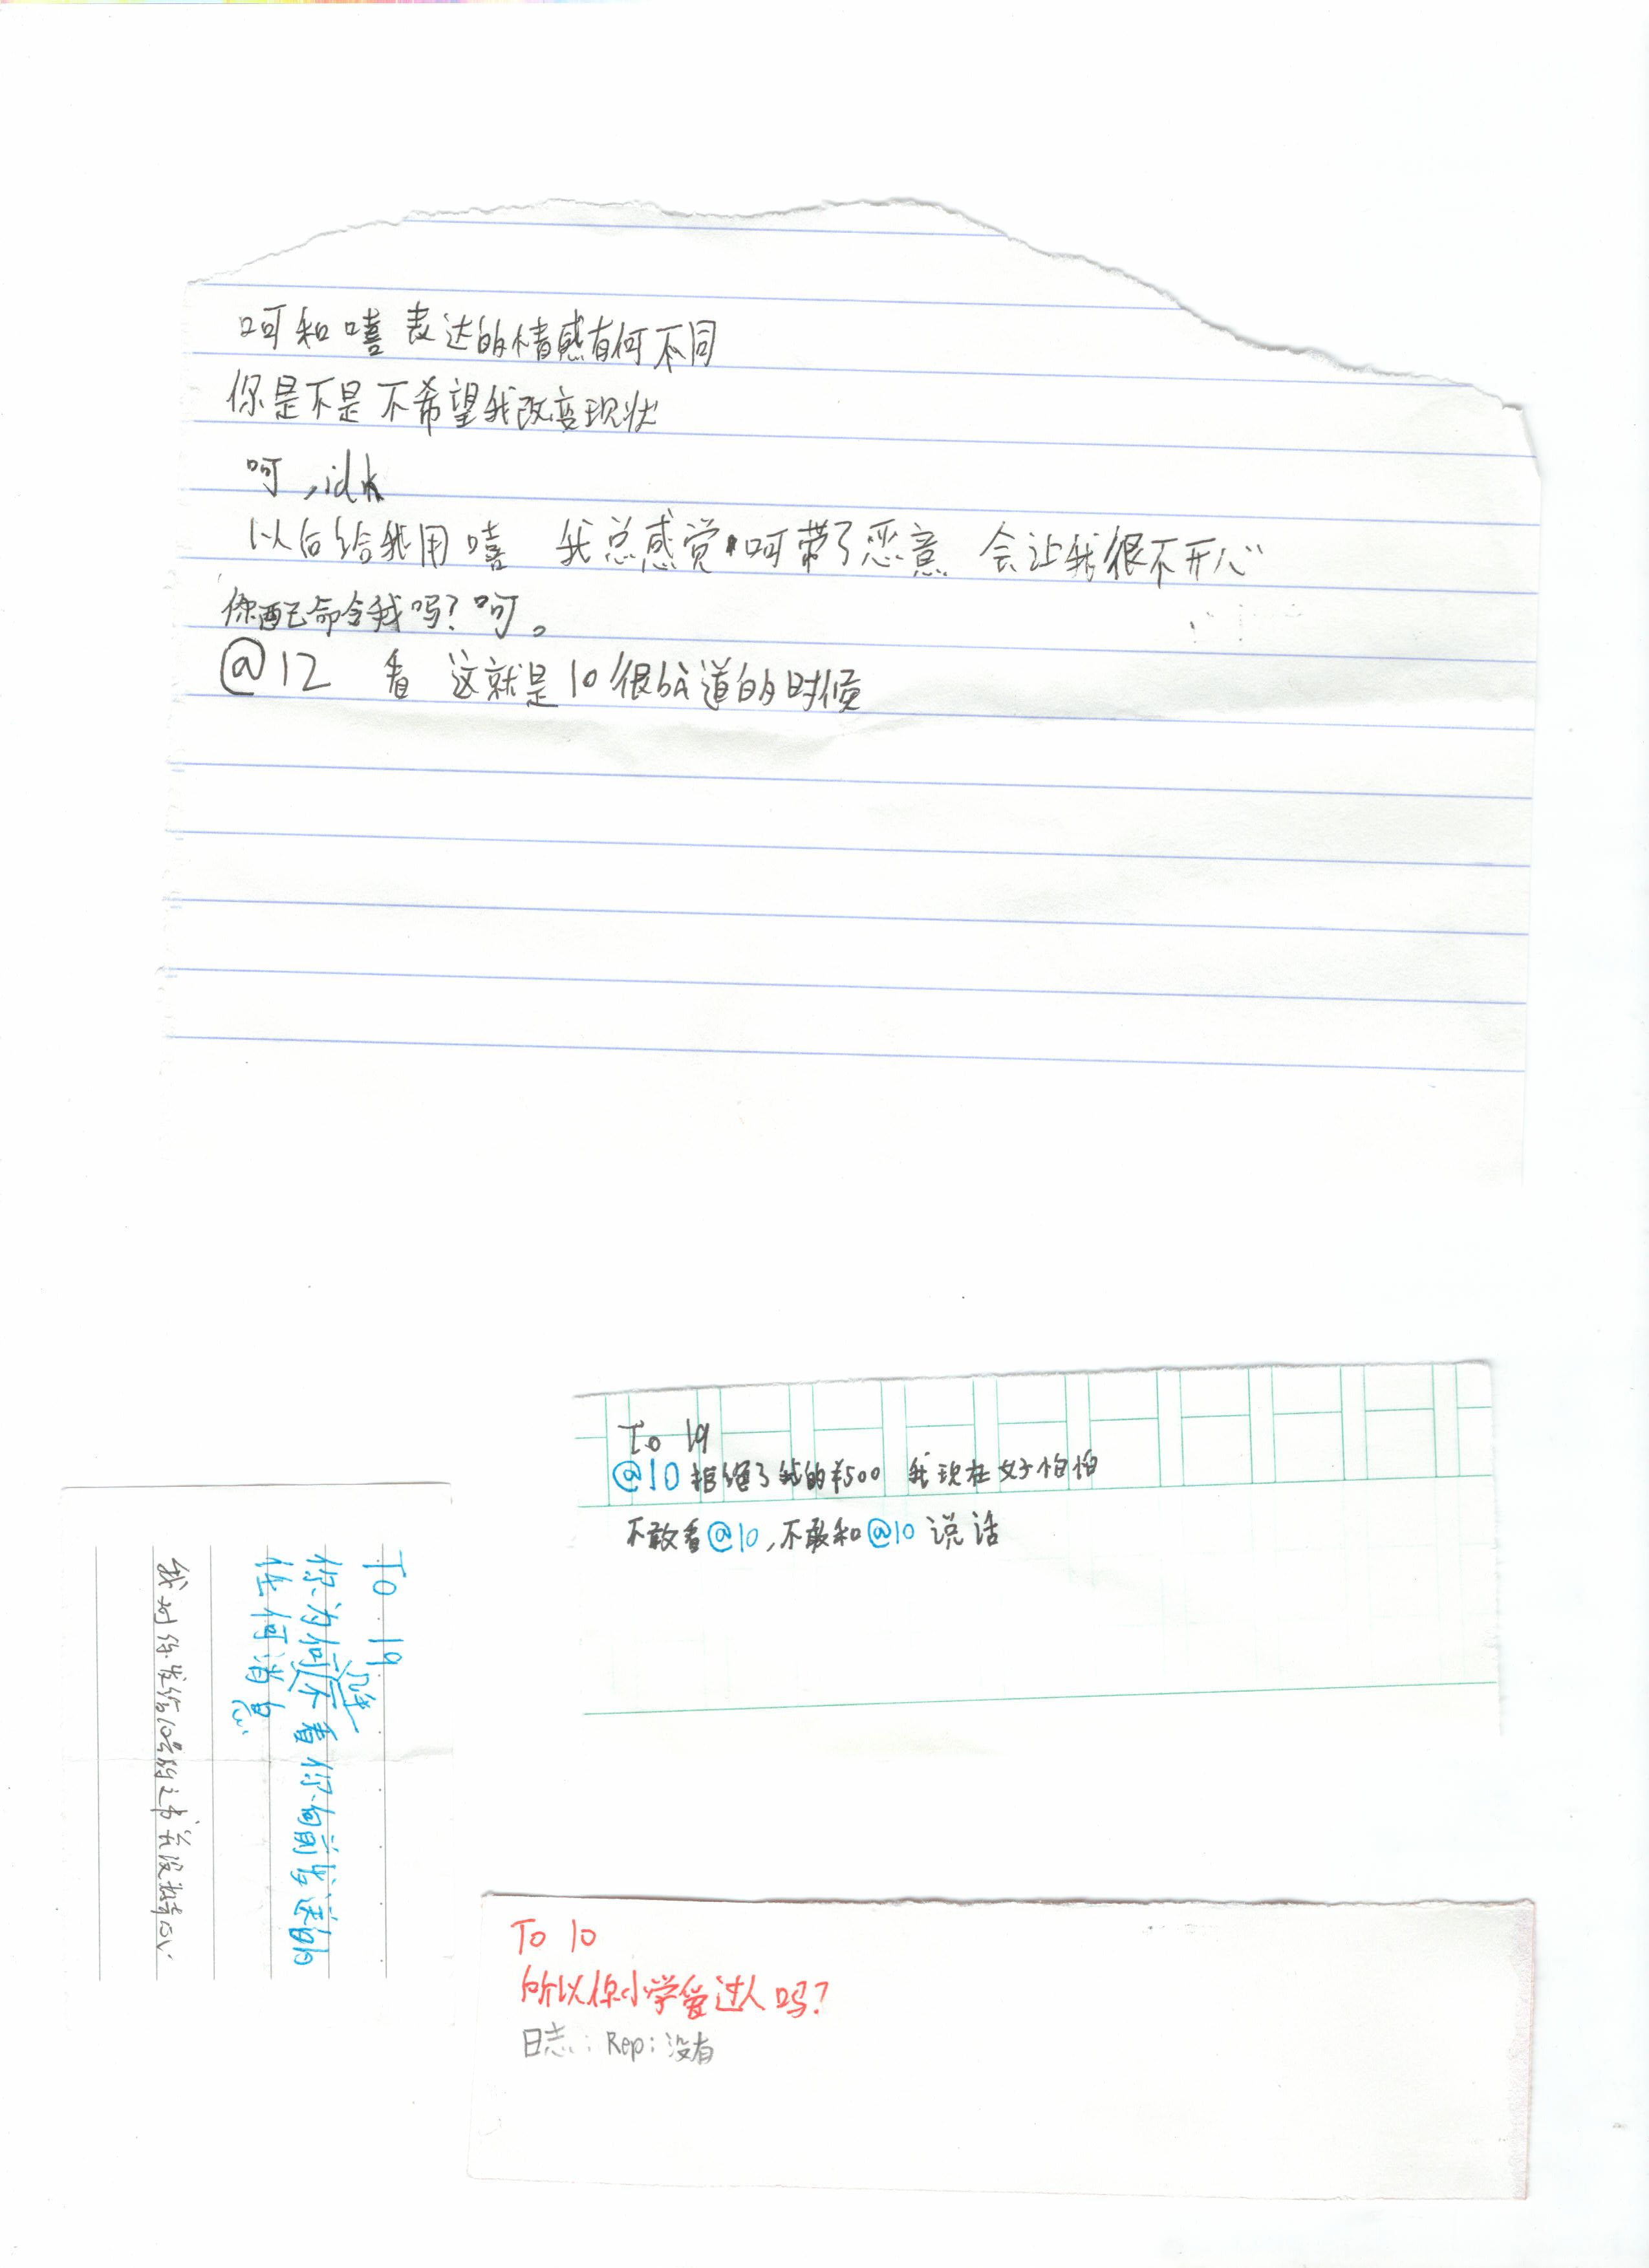 呵和嘻表达的情感有何不同
你是不是不希望我改变现状
呵,idk
以后给我用嘻 我总感觉呵带了恶意 会让我很不开心
你配命令我吗?呵。
@12 看 这就是10很霸道的时候
To 19
@10 拒绝了我的¥500 我现在好怕怕
不敢看@10,不敢和@10 说话
To 19
你为何不看你向前发送的
任何消息
我对你发给10号的文书并没兴趣
To 10
所以你小学爱过人吗?
日志:Rep:没有